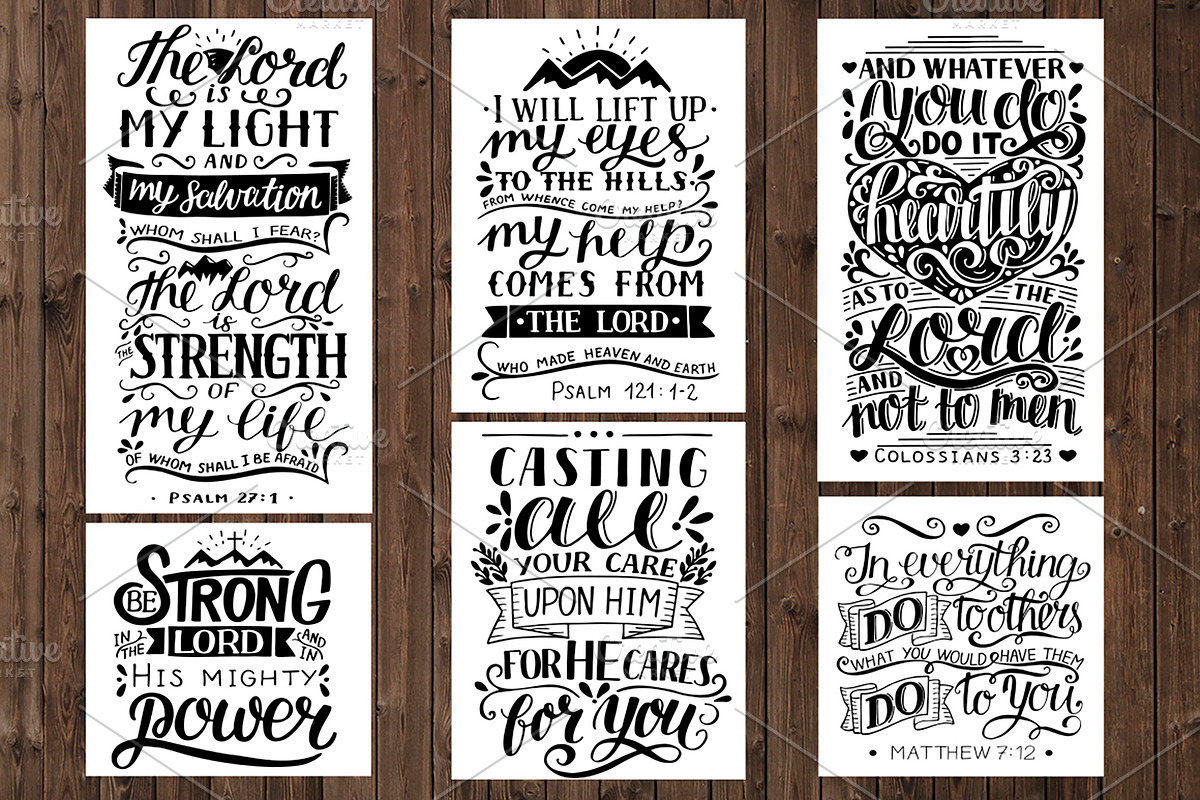 The Lord
is
MY LIGHT
AND
my salvation
WHOM SHALL I FEAR?
the Lord
is
THE STRENGTH
OF
my life
OF WHOM SHALL I BE AFRAID
· PSALM 27:1 ·
BE STRONG
IN THE LORD AND IN
HIS MIGHTY
power
· I WILL LIFT UP ·
my eyes
TO THE HILLS
FROM WHENCE COME MY HELP?
my help
COMES FROM
· THE LORD ·
WHO MADE HEAVEN AND EARTH
PSALM 121:1-2
CASTING
all
YOUR CARE
UPON HIM
FOR HE CARES
for you
AND WHATEVER
you do
DO IT
heartily
AS TO THE
Lord
AND
not to men
COLOSSIANS 3:23
In everything
DO to others
WHAT YOU WOULD HAVE THEM
DO to you
· MATTHEW 7:12 ·
Creative
MARKET